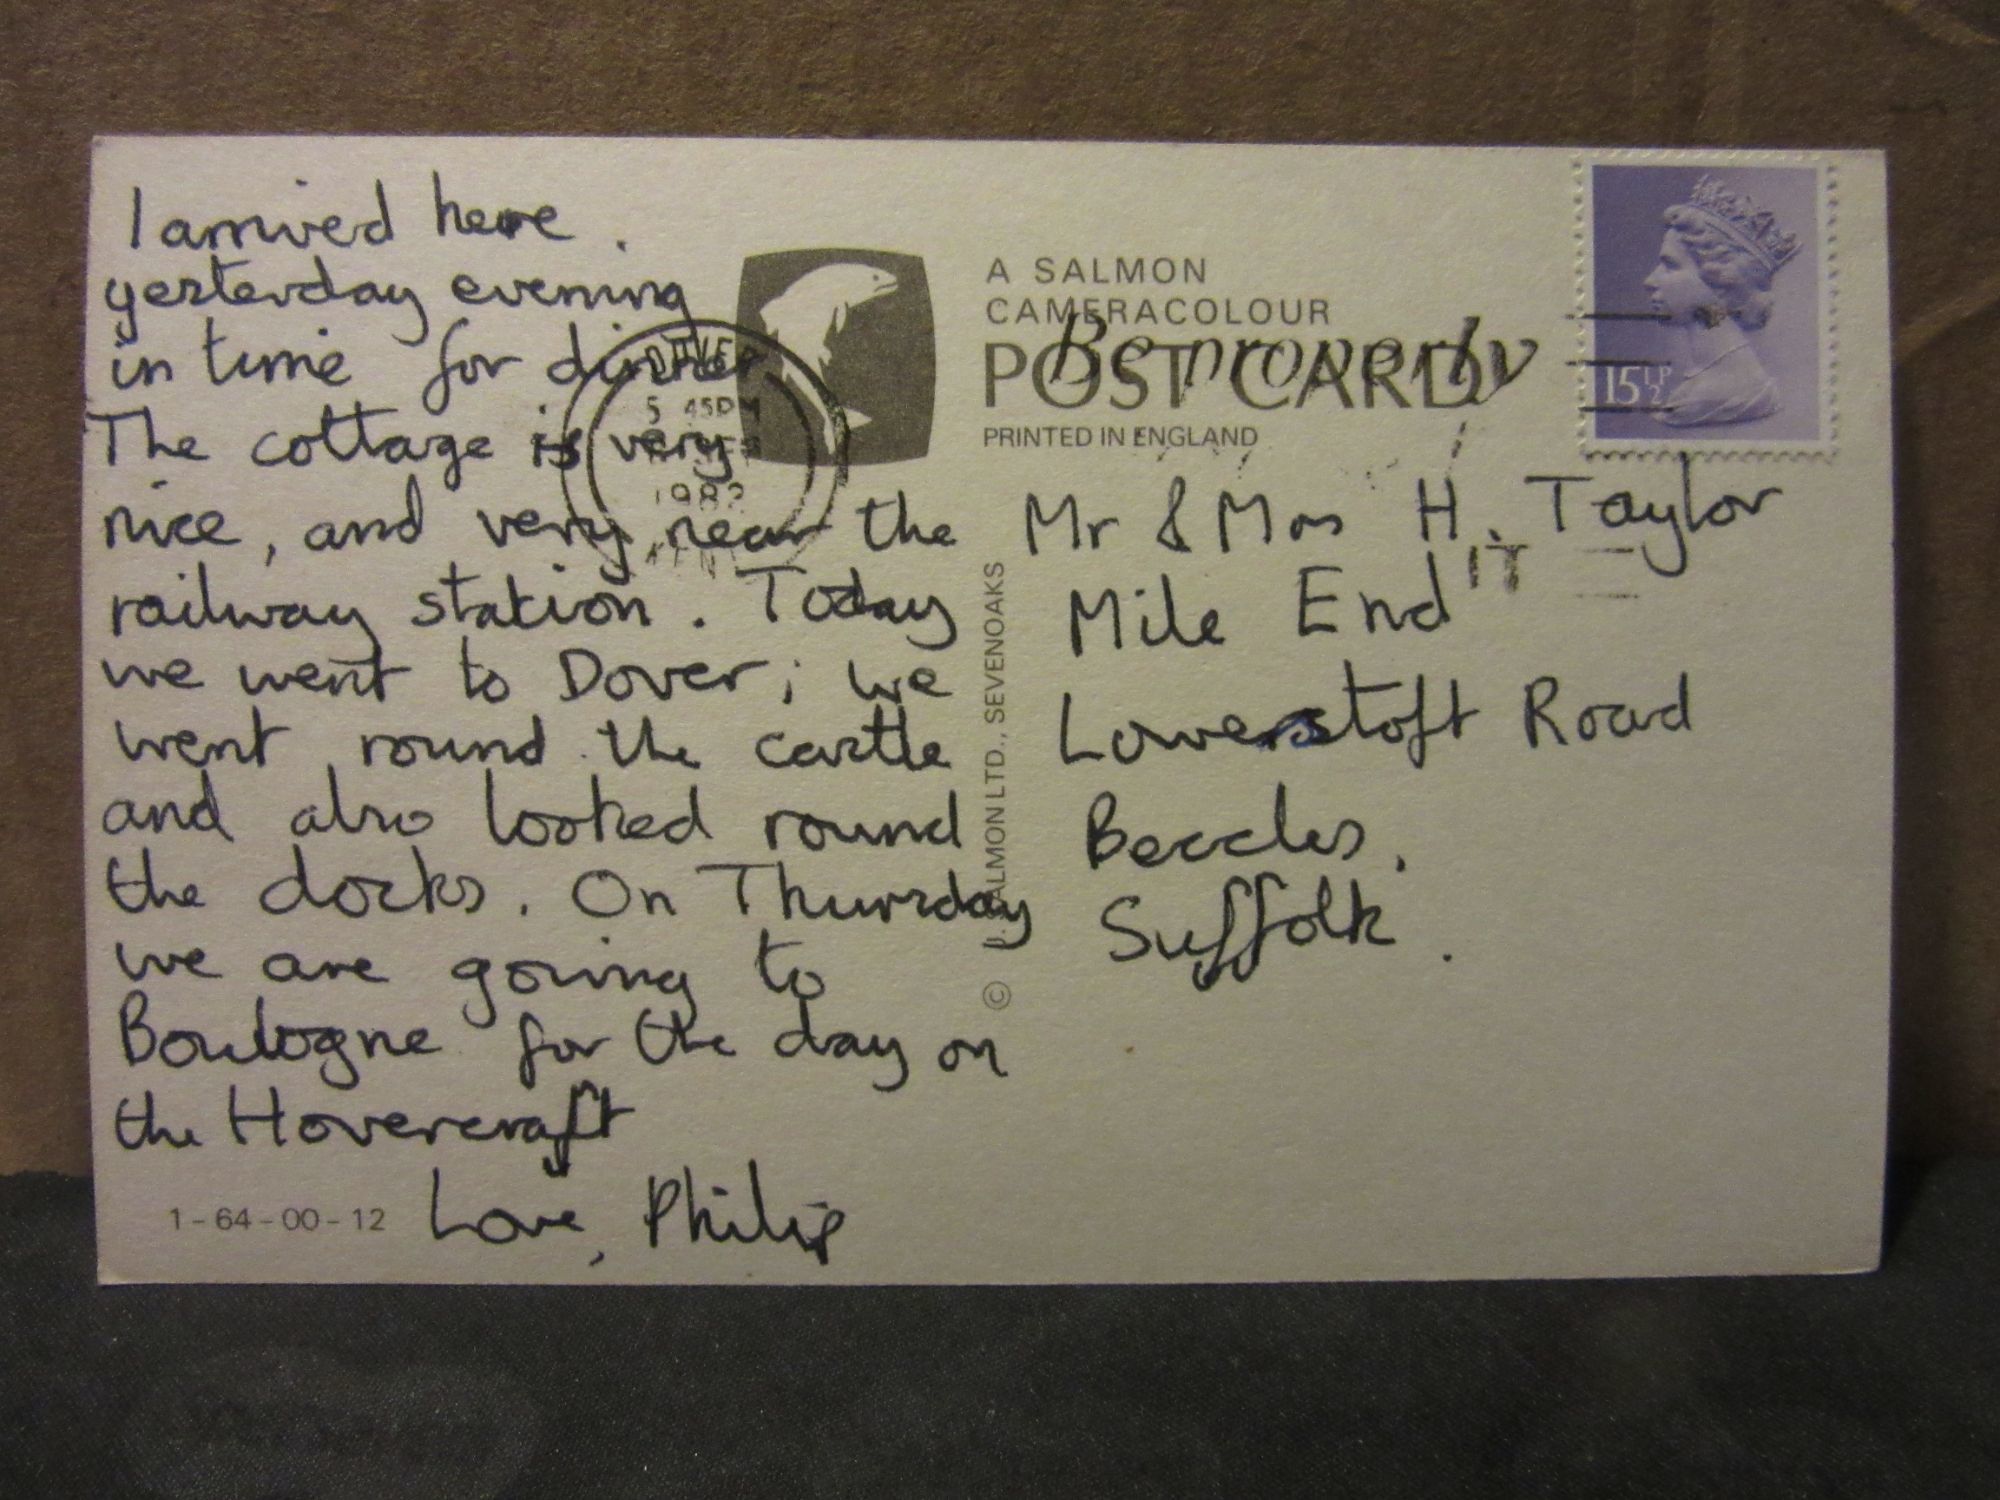 I arrived here.
yesterday evening
in time for dinner
The cottage is very
nice, and very near the
railway station. Today
we went to Dover; we
went round the castle
and also looked round
the docks. On Thursday
we are going to
Boulogne for the day on
the Hovercraft
Love, Philip
1-64-00-12
DOVER
5 45PM
1982
KENT
A SALMON
CAMERACOLOUR
POST CARD
PRINTED IN ENGLAND
Be properly
IT
15½P
© J. SALMON LTD., SEVENOAKS
Mr & Mrs H. Taylor
Mile End
Lowerstoft Road
Beccles.
Suffolk.